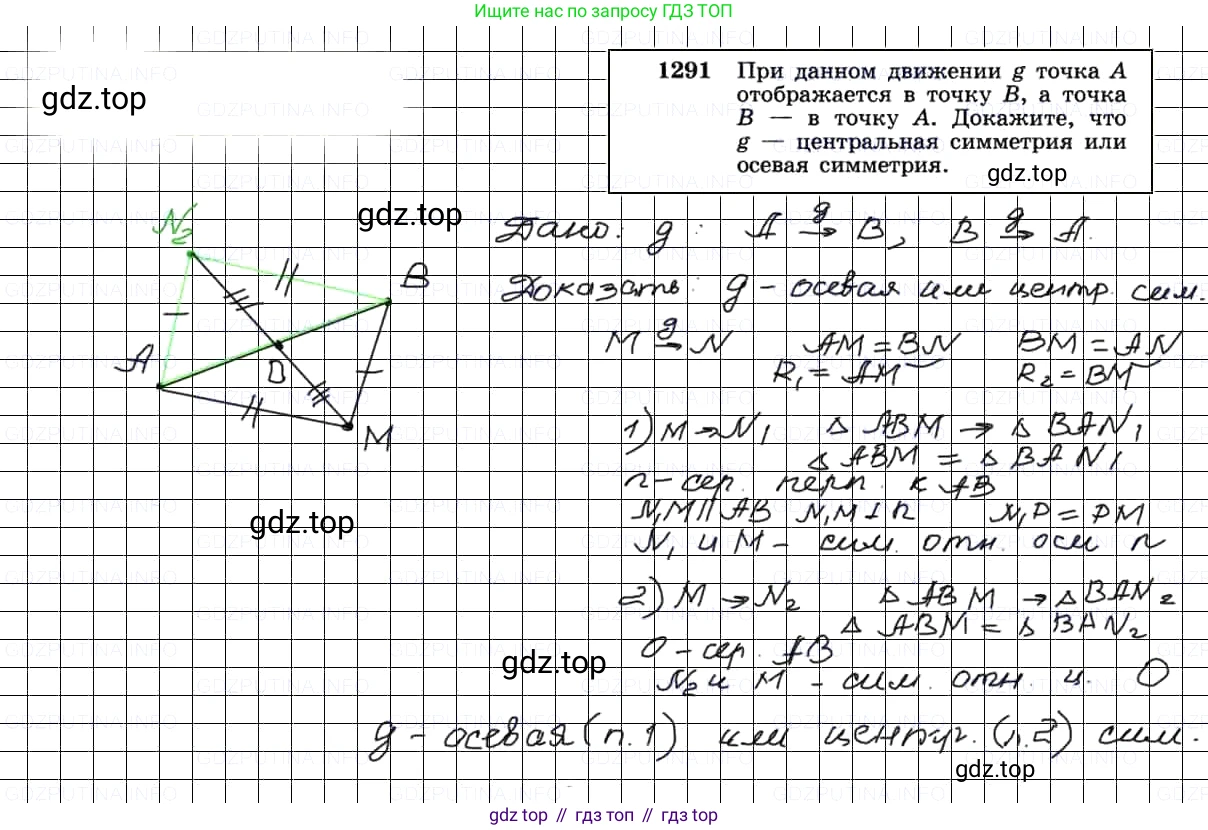 Ищите нас по запросу ГДЗ ТОП
1291 При данном движении g точка A
отображается в точку B, а точка
B — в точку A. Докажите, что
g — центральная симметрия или
осевая симметрия.
gdz.top
gdz.top
gdz.top
Дано: g: A →g B, B →g A.
Доказать: g - осевая или центр. сим.
M →g N AM = BN BM = AN
R₁ = AM R₂ = BM
1) M → N₁ △ ABM → △ BAN₁
△ ABM = △ BAN₁
n - сер. перп. к AB
N₁M || AB N₁M ⊥ n N₁P = PM
N₁ и M - сим. отн. оси n
gdz.top
2) M → N₂ △ ABM → △ BAN₂
△ ABM = △ BAN₂
O - сер. AB
gdz.top
N₂ и M - сим. отн. ц. O
g - осевая (п.1) или центр. (п.2) сим.
gdz.top
N₂
B
A
O
M
gdz.top // гдз топ // gdz top